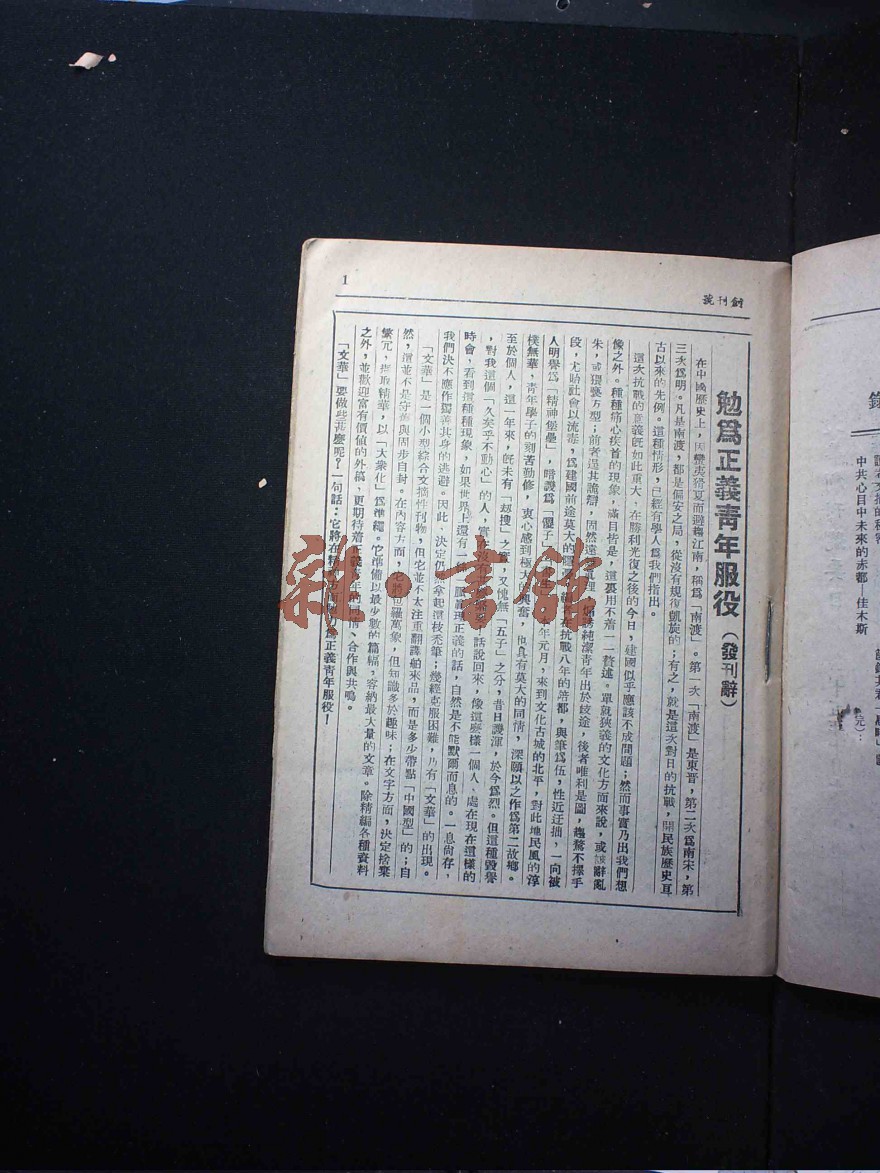 創刊號
1
勉爲正義靑年服役(發刊辭)
在中國歷史上,因蠻夷猾夏而避趨江南,稱爲「南渡」。第一次「南渡」是東晉,第二次爲南宋,第
三次爲明。凡是南渡,都是偏安之局,從沒有規復凱旋的;有之,就是這次對日的抗戰,開民族歷史亙
古以來的先例。這種情形,已經有學人爲我們指出。
這次抗戰的意義旣如此重大,在勝利光復之後的今日,建國似乎應該不成問題;然而事實乃出我們想
像之外。種種痛心疾首的現象,滿目皆是,這裏用不着一一贅述。單就狹義的文化方面來說,或詖辭亂
朱,或猥褻方型;前者逞其詭辯,固然遠 眞理, 純潔靑年出於歧途,後者唯利是圖,趨騖不擇手
段,尤貽社會以流毒,爲建國前途莫大的 在抗戰八年的陪都,與筆爲伍,性近迂拙,一向被
人明譽爲「精神堡壘」,暗諷爲「傻子」 年元月,來到文化古城的北平,對此地民風的淳
樸無華,靑年學子的刻苦勤修,衷心感到極大的興奮,也具有莫大的同情,深願以之作爲第二故鄉。
至於個人,這一年來,旣未有「刼搜」之實,又愧無「五子」之分,昔日譏渾,於今爲烈。但這種毀譽
,對我這個「久矣乎不動心」的人,實在沒有 話說回來,像這麼樣一個人,處在現在這樣的
時會,看到這種種現象,如果世界上還有一 眞理正義的話,自然是不能默爾而息的。一息尙存,
我們決不應作獨善其身的逃避。因此,決定仍 拿起這枝禿筆;幾經克服困難,乃有「文華」的出現。
「文華」是一個小型綜合文摘性刊物,但它並不太注重翻譯舶來品,而是多少帶點「中國型」的;自
然,這並不是守舊與固步自封。在內容方面,它將包羅萬象,但知識多於趣味;在文字方面,決定捨棄
繁冗,擷取精華,以「大衆化」爲準繩。它準備以最少數的篇幅,容納最大量的文章。除精編各種資料
之外,並歡迎富有價値的外稿,更期待着正義靑年的同情、合作與共鳴。
「文華」要做些甚麼呢?一句話:它將在精神方面 爲正義靑年服役!
雜·書館
錄
中共心目中未來的赤都—佳木斯